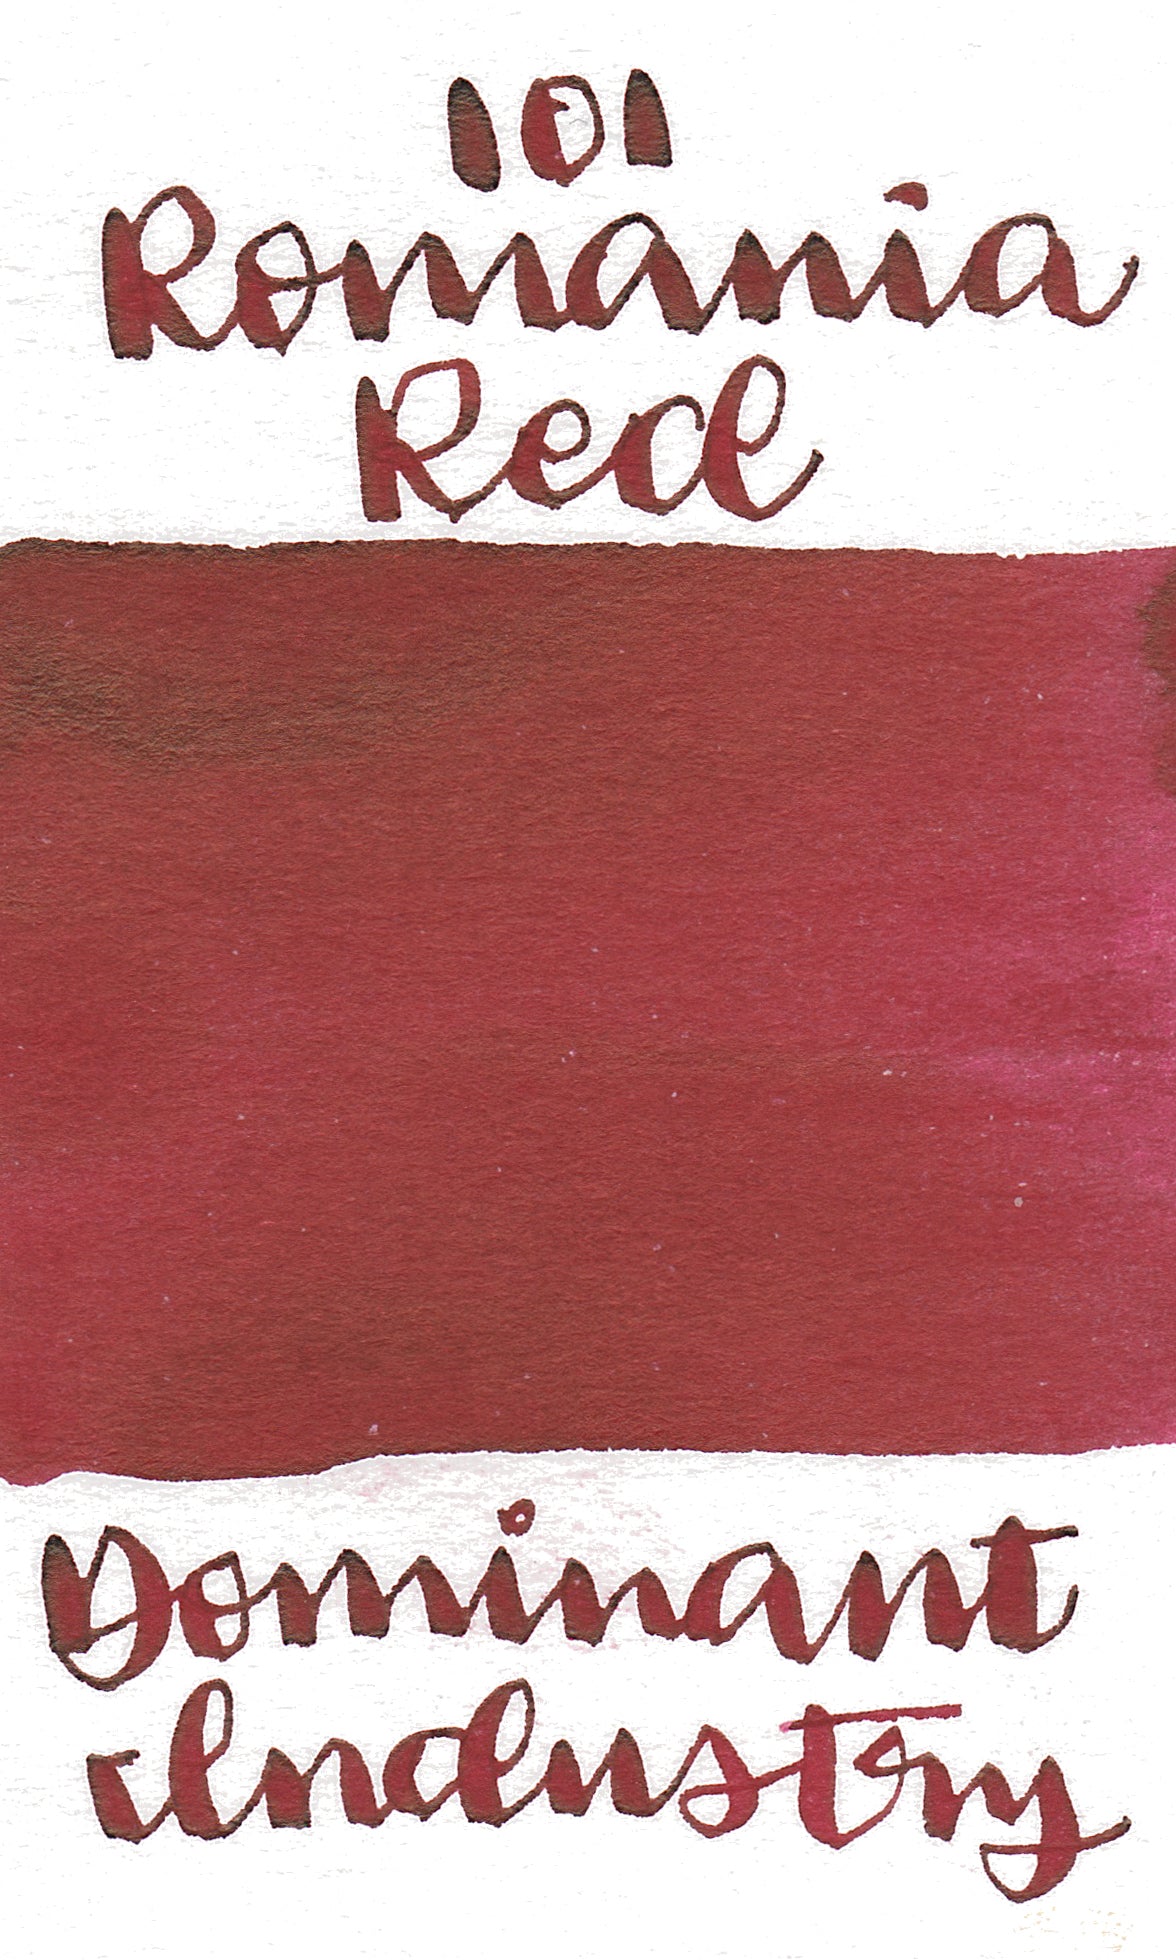 101
Romania
Red
Dominant
Industry